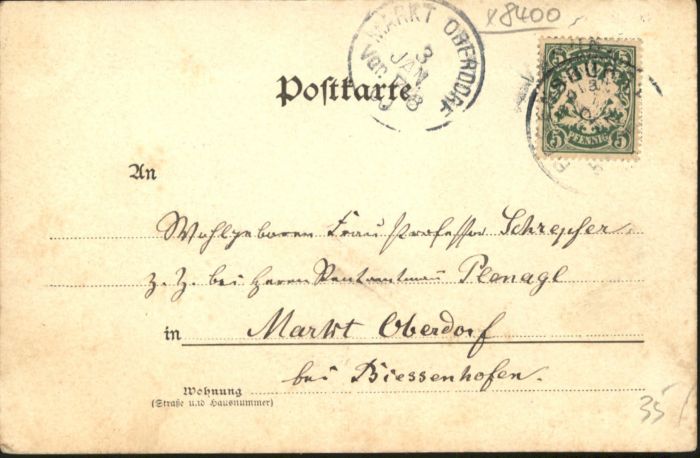 x8400
MARKT OBERDORF
3
JAN.
Vor. 7-8
00
Postkarte
5 5
PFENNIG
An
Wohlgeboren Frau Professor Schrepfer
z. Z. bei Herrn Rentamtmann Plenagl
in Markt Oberdorf
bei Biessenhofen.
Wohnung
(Straße und Hausnummer)
35